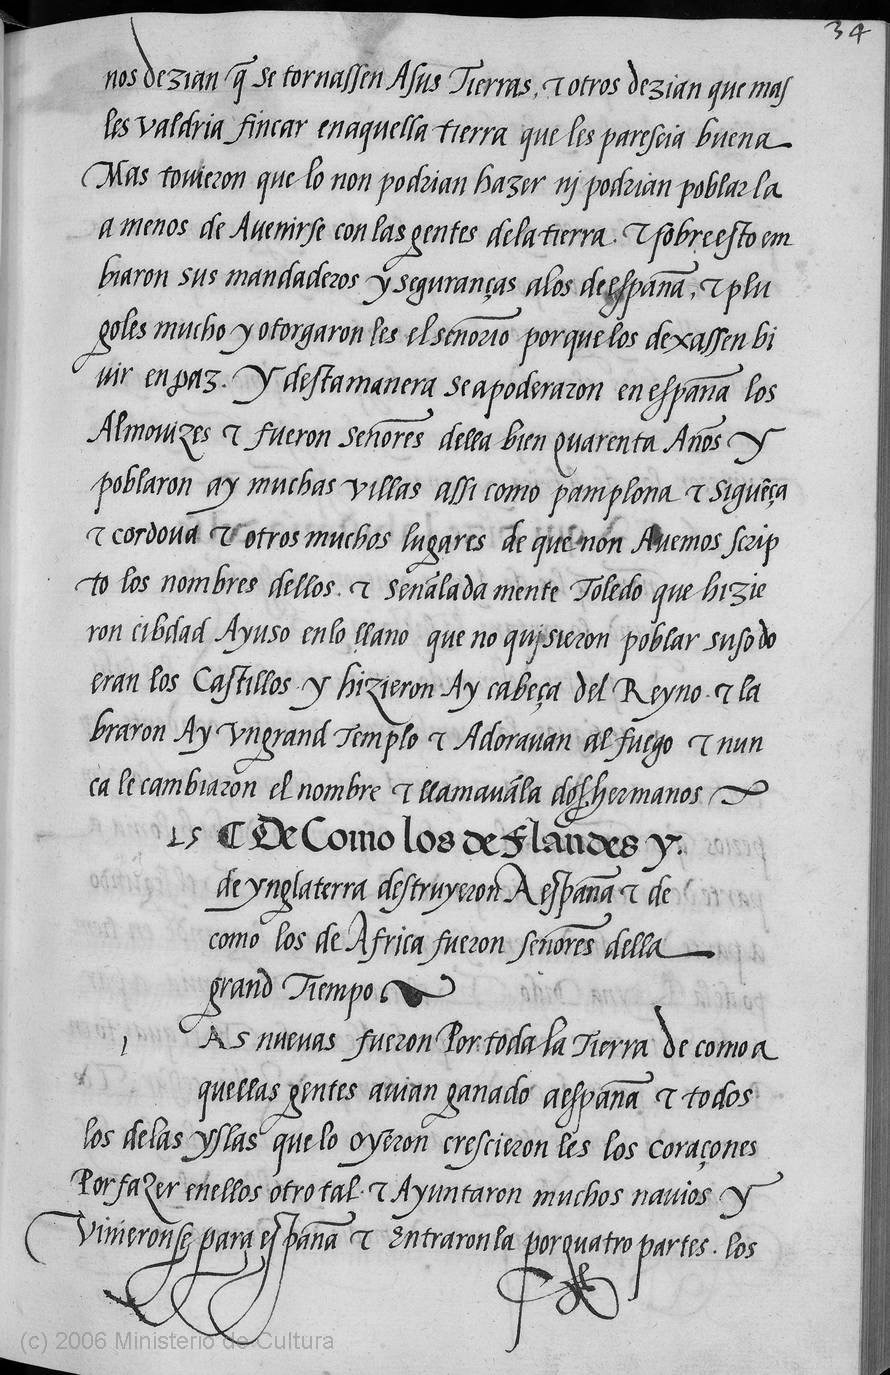 34
nos dezian q̃ se tornassen Asus Tierras, τ otros dezian que mas
les valdria fincar enaquella tierra que les paresçia buena
Mas tovieron que lo non podrian hazer nj podrian poblar la
a menos de Avenirse con las gentes dela tierra. τ sobre esto em
biaron sus mandaderos y seguranças alos de españa, τ plu
goles mucho y otorgaron les el señorio porque los dexassen bi
uir en paz. Y desta manera se apoderaron en españa los
Almovizes τ fueron señores della bien quarenta Años Y
poblaron ay muchas villas assi como pamplona τ siguẽça
τ cordova τ otros muchos lugares de que non Avemos scrip
to los nombres dellos. τ señalada mente Toledo que hizie
ron cibdad Ayuso enlo llano que no quisieron poblar suso do
eran los Castillos y hizieron Ay cabeça del Reyno. τ la
braron Ay Vn grand Templo τ Adoravan al fuego τ nun
ca le cambiaron el nombre τ llamavãla dos hermanos
15 De Como los de Flandes y.
de ynglaterra destruyeron A españa τ de
como los de Africa fueron señores della
grand Tiempo
l As nuevas fueron Por toda la Tierra de como a
quellas gentes avian ganado a españa τ todos
los delas yslas que lo oyeron crescieron les los coraçones
Por fazer enellos otro tal. τ Ayuntaron muchos navios Y
vinieronse para españa τ Entraronla por quatro partes. los
(c) 2006 Ministerio de Cultura